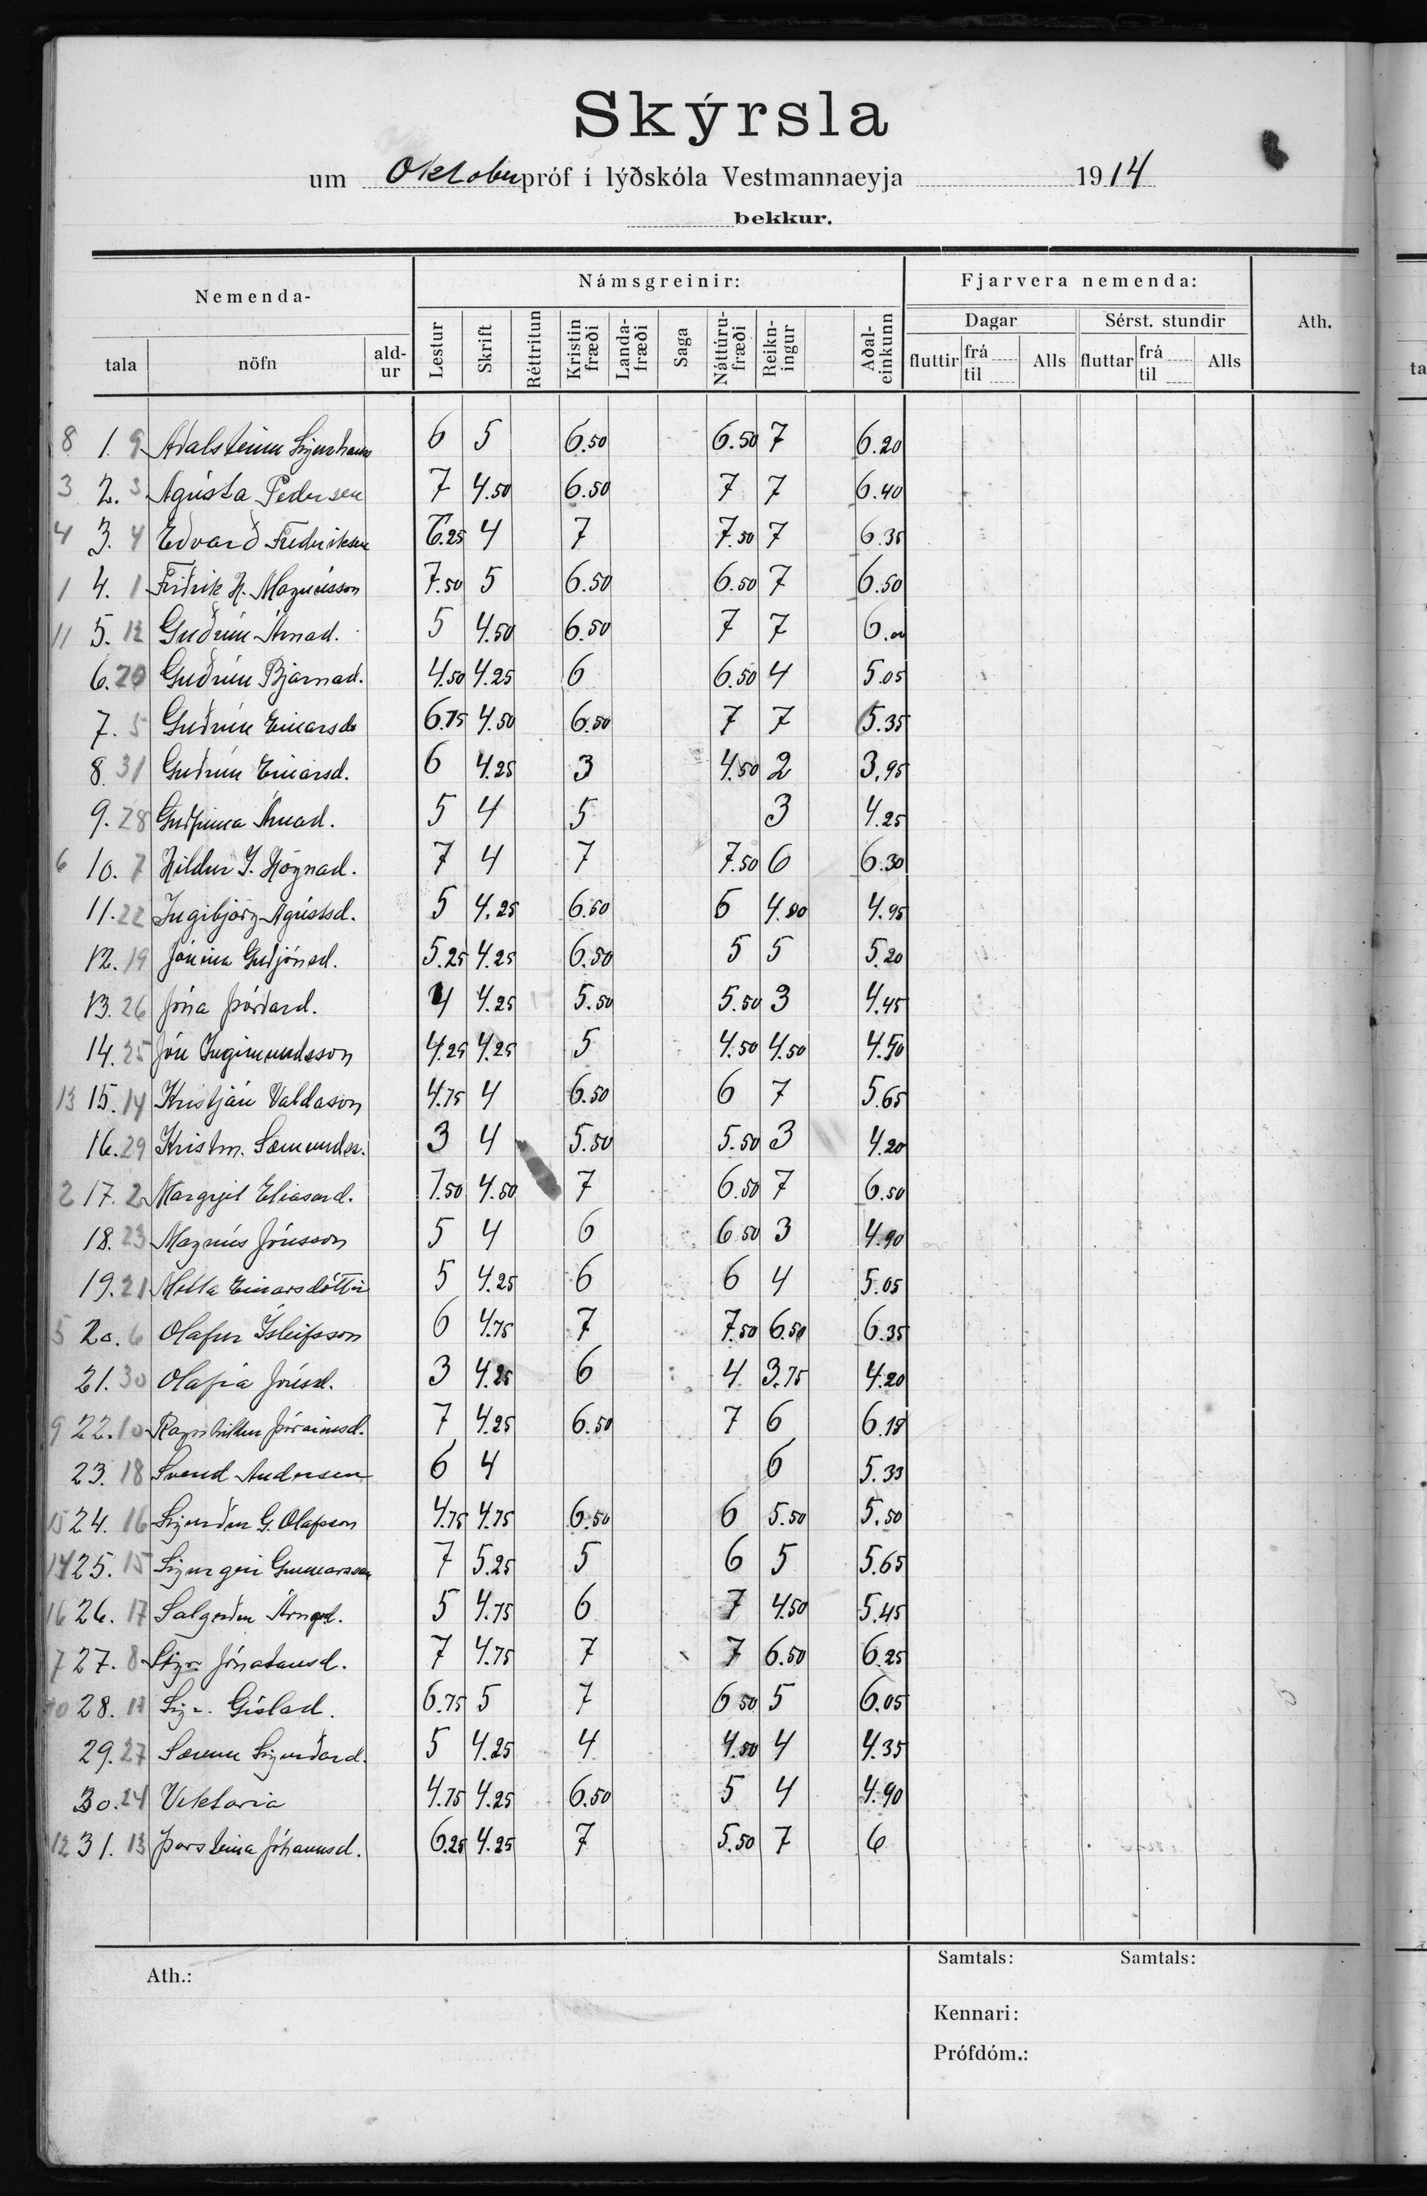 Skýrsla
um Oktober próf í lýðskóla Vestmannaeyja 1914
bekkur.
Nemenda- Námsgreinir: Fjarvera nemenda: Ath.
Dagar Sérst. stundir
tala nöfn ald-ur Lestur Skrift Réttritun Kristin fræði Landa-fræði Saga Náttúru-fræði Reikn-ingur Aðal-einkunn fluttir frá til Alls fluttar frá til Alls
8 1. 9 Aðalsteinn 6 5 6.50 6.50 7 6.20
3 2. 3 Agústa Pedersen 7 4.50 6.50 7 7 6.40
4 3. 4 Edvarð Frederiksen 6.25 4 7 7.50 7 6.35
1 4. 1 Friðrik H. Magnússon 7.50 5 6.50 6.50 7 6.50
11 5. 12 Guðrún Árnad. 5 4.50 6.50 7 7 6.00
6. 20 Guðrún Bjarnad. 4.50 4.25 6 6.50 4 5.05
7. 5 Guðrún Einarsd 6.75 4.50 6.50 7 7 5.35
8. 31 Guðrún Einarsd. 6 4.25 3 4.50 2 3.95
9. 28 Guðfinna Árnad. 5 4 5 3 4.25
6 10. 7 Hildur J. Högnad. 7 4 7 7.50 6 6.30
11. 22 Ingibjörg Agústsd. 5 4.25 6.50 5 4.00 4.95
12. 19 Jónína Guðjónsd. 5.25 4.25 6.50 5 5 5.20
13. 26 Jóna Þórðard. 4 4.25 5.50 5.50 3 4.45
14. 25 Jón Ingimundsson 4.25 4.25 5 4.50 4.50 4.50
13 15. 14 Kristján Valdason 4.75 4 6.50 6 7 5.65
16. 29 Kristm. Sæmundss. 3 4 5.50 5.50 3 4.20
2 17. 2 Margrjet Eliasard. 7.50 4.50 7 6.50 7 6.50
18. 23 Magnús Jónsson 5 4 6 6.50 3 4.90
19. 21 Metta Einarsdóttir 5 4.25 6 6 4 5.05
5 20. 6 Olafur Ísleifsson 6 4.75 7 7.50 6.50 6.35
21. 30 Olafía Jónsd. 3 4.25 6 4 3.75 4.20
9 22. 10 Ragnhildur Þórarinsd. 7 4.25 6.50 7 6 6.15
23. 18 Svend Andersen 6 4 6 5.33
15 24. 16 Sigurður G. Olafsson 4.75 4.75 6.50 6 5.50 5.50
14 25. 15 Sigurgeir Gunnarsson 7 5.25 5 6 5 5.65
16 26. 17 Salgerður Arngd. 5 4.75 6 7 4.50 5.45
7 27. 8 Sigr. Jónatansd. 7 4.75 7 7 6.50 6.25
10 28. 11 Sigr. Gíslad. 6.75 5 7 6.50 5 6.05
29. 27 Sigurðard. 5 4.25 4 4.50 4 4.35
30. 24 Viktoria 4.75 4.25 6.50 5 4 4.90
12 31. 13 Þorsteina Jóhannsd. 6.25 4.25 7 5.50 7 6
Ath.: Samtals: Samtals:
Kennari:
Prófdóm.:
ta